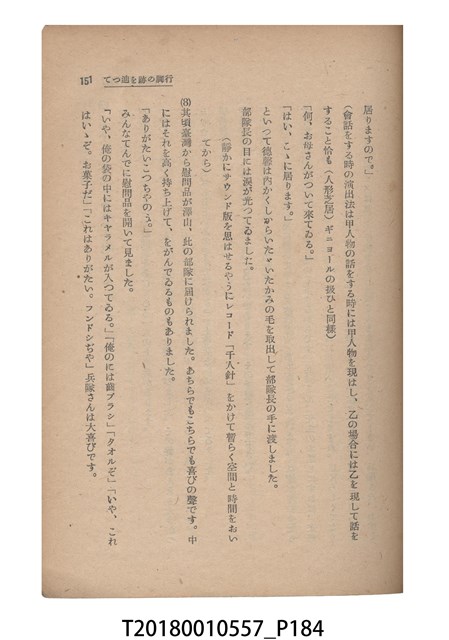 151 てつ追を跡の脚行
居りますので。」
(會話をする時の演出法は甲人物の話をする時には甲人物を現はし、乙の場合には乙を現して話を
すること恰も(人形芝居)ギニョールの扱ひと同様)
「何、お母さんがついて來てゐる。」
「はい、こゝに居ります。」
といつて德彰は內かくしからいたゞいたかみの毛を取出して部隊長の手に渡しました。
部隊長の目には涙が光つてゐました。
(靜かにサウンド版を思はせるやうにレコード「千人針」をかけて暫らく空間と時間をおい
てから)
(8)其頃臺灣から慰問品が澤山、此の部隊に屆けられました。あちらでもこちらでも喜びの聲です。中
にはそれを高く持ち上げて、をがんでゐるものもありました。
「ありがたいこつちやのう。」
みんなてんでに慰問品を開いて見ました。
「いや、俺の袋の中にはキヤラメルが入つてゐる。」「俺のには齒ブラシ」「タオルぞ」「いや、これ
はいゝぞ。お菓子だ」「これはありがたい。フンドシぢや」兵隊さんは大喜びです。
T20180010557_P184